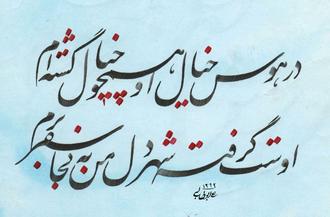 در هوس خیال او همچو خیال گشته‌ام
اوست گرفته شهر دل من به کجا سفر برم